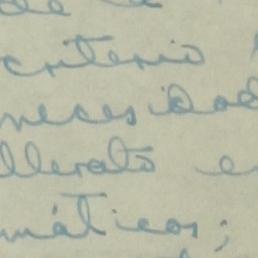 de la
criterio
necesidad
llevato en
máticos;